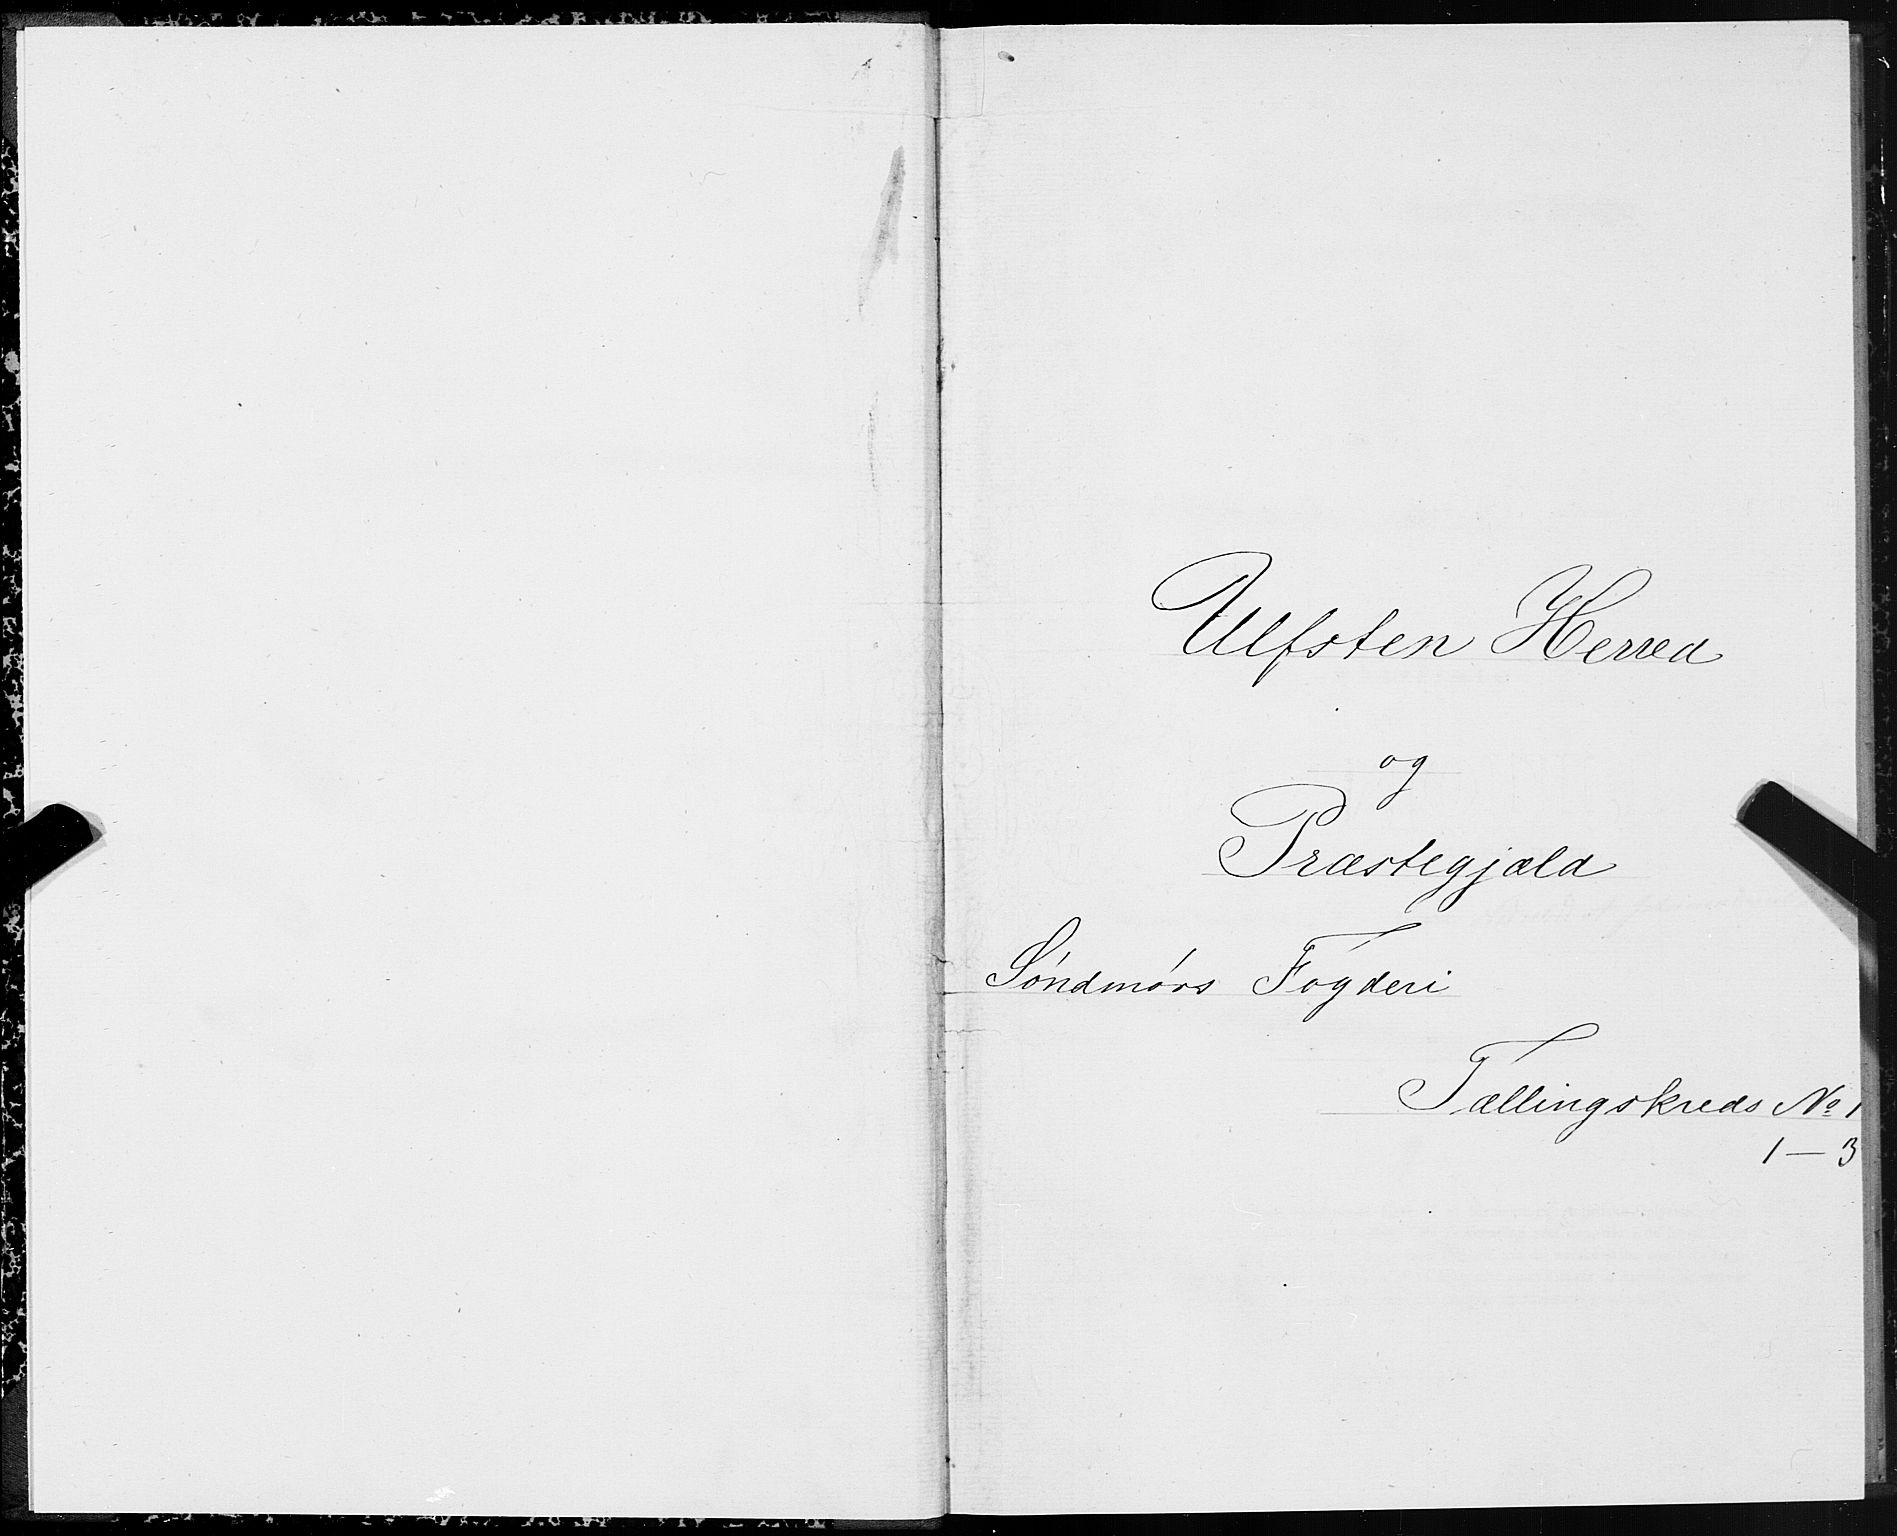 Ulfsten Herred
og
Præstegjæld
Søndmørs Fogderi
Tællingskreds No 1
1 — 3